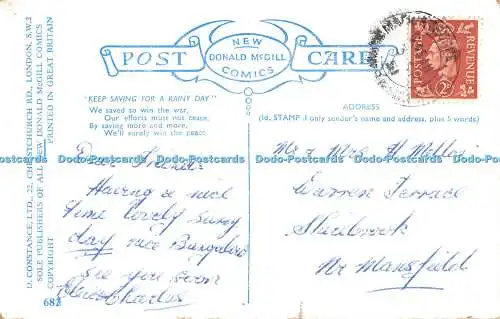 POST CARD
NEW
DONALD McGILL
COMICS
"KEEP SAVING FOR A RAINY DAY"
We saved to win the war,
Our efforts must not cease,
By saving more and more,
We'll surely win the peace.
ADDRESS
(1d. STAMP if only sender's name and address, plus 5 words)
D. CONSTANCE, LTD., 22, CHRISTCHURCH RD., LONDON, S.W.2
SOLE PUBLISHERS OF ALL NEW DONALD McGILL COMICS
COPYRIGHT PRINTED IN GREAT BRITAIN
682
POSTAGE REVENUE
2D
Dear Friends
Having a nice
time lovely sunny
day nice Bungalow
see you soon
Elsie Charles
Mr & Mrs H
Warren Terrace
Shirebrook
Nr Mansfield
Dodo-Postcards Dodo-Postcards Dodo-Postcards Dodo-Postcards Dodo-Postcards